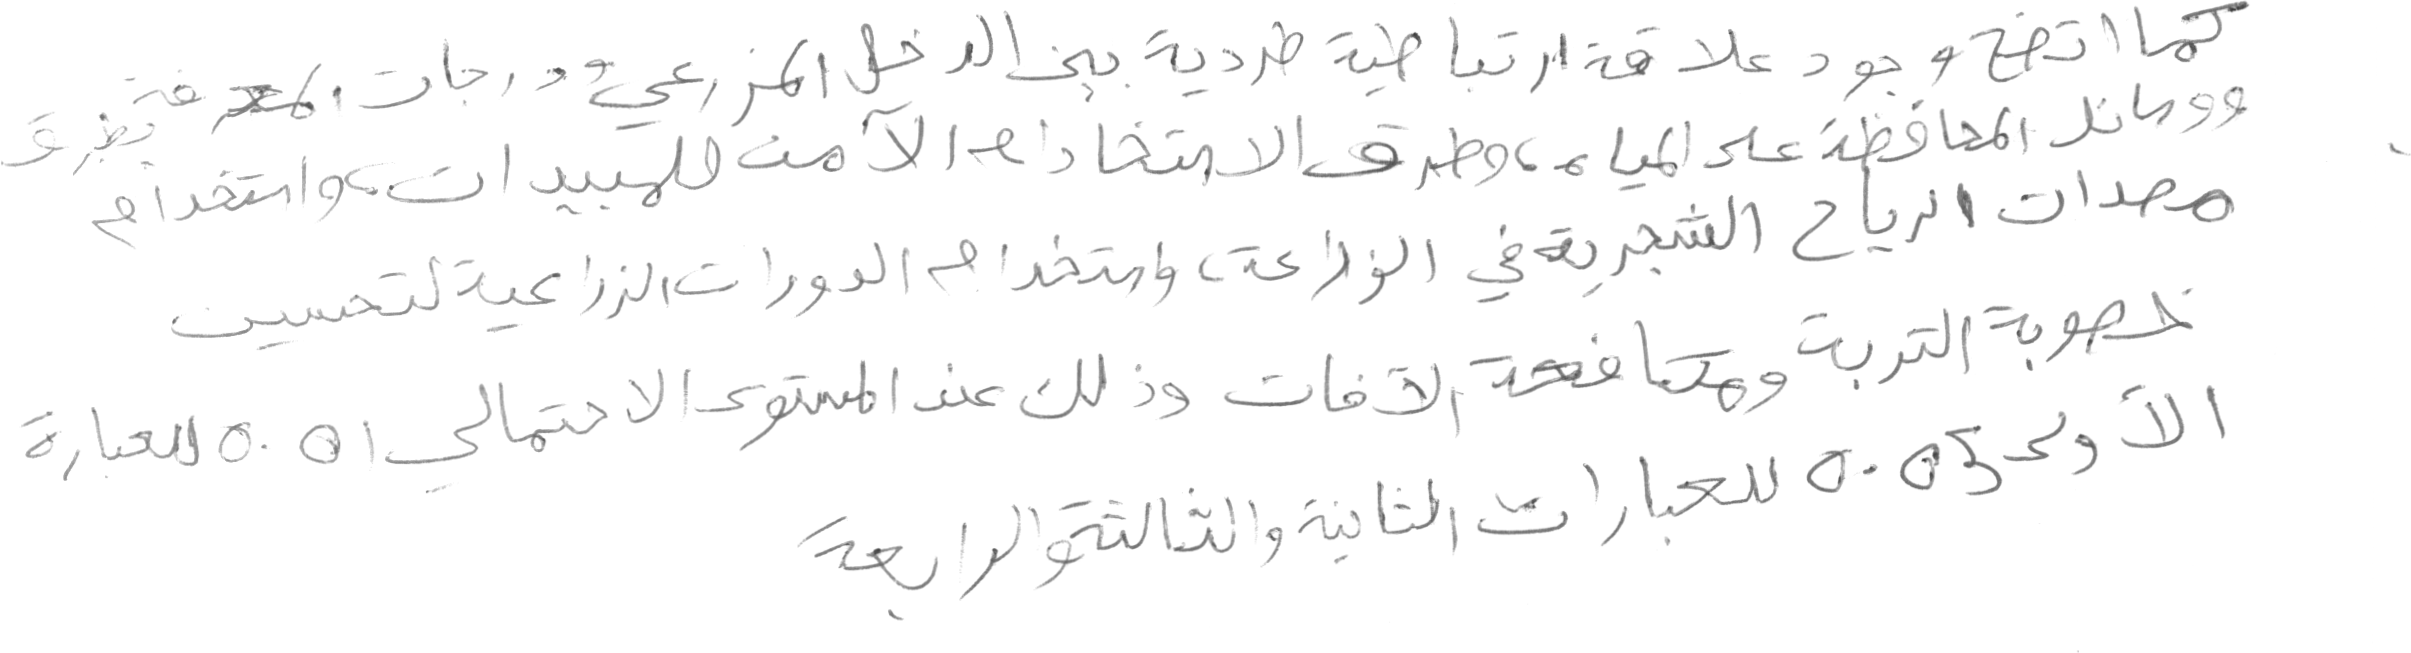 كما اتضح وجود علاقة ارتباطية طردية بين الدخل المزرعي ودرجات المعرفة بطرق
ووسائل المحافظة على المياه، وطرق الاستخدام الآمن للمبيدات، واستخدام
مصدات الرياح الشجرية في الزراعة، واستخدام الدورات الزراعية لتحسين
خصوبة التربة ومكافحة الآفات وذلك عند المستوى الاحتمالي 0.01 للعبارة
الأولى و0.05 للعبارات الثانية والثالثة والرابعة